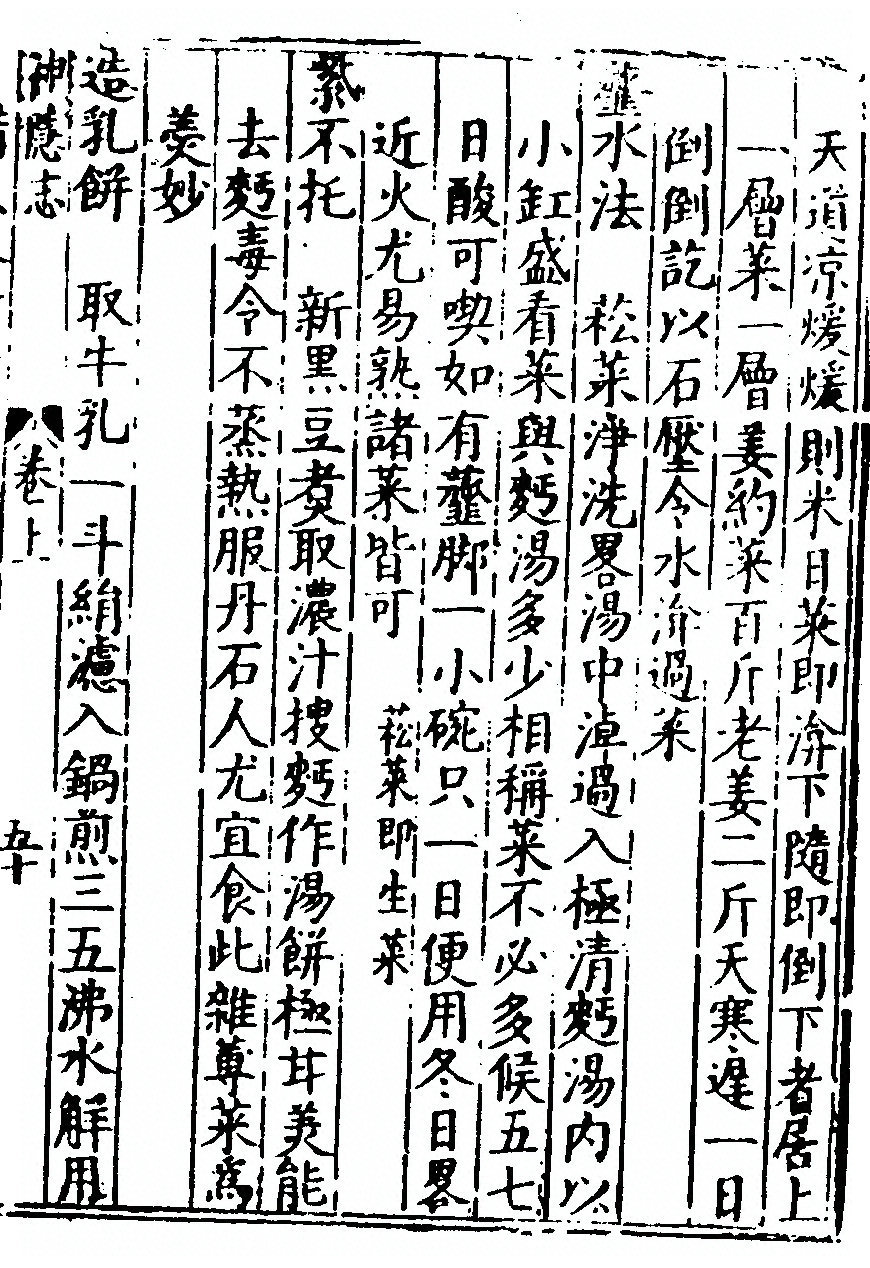 天道凉煖煖則米日菜即渰下隨即倒下者居上
一層菜一層姜約菜百斤老姜二斤天寒遲一日
倒倒訖以石壓令水渰過菜
虀水法　菘菜淨洗畧湯中淖過入極清麪湯內以
小缸盛看菜與麪湯多少相稱菜不必多候五七
日酸可喫如有虀脚一小碗只一日便用冬日畧
近火尤易熟諸菜皆可　菘菜即生菜
不托　新黒豆煑取濃汁搜麪作湯餅極甘美能
去麪毒令不蒸熱服丹石人尤宜食此雜蓴菜爲
羮妙
造乳餅　取牛乳一斗絹濾入鍋煎三五沸水解用
神隱志
卷上
五十